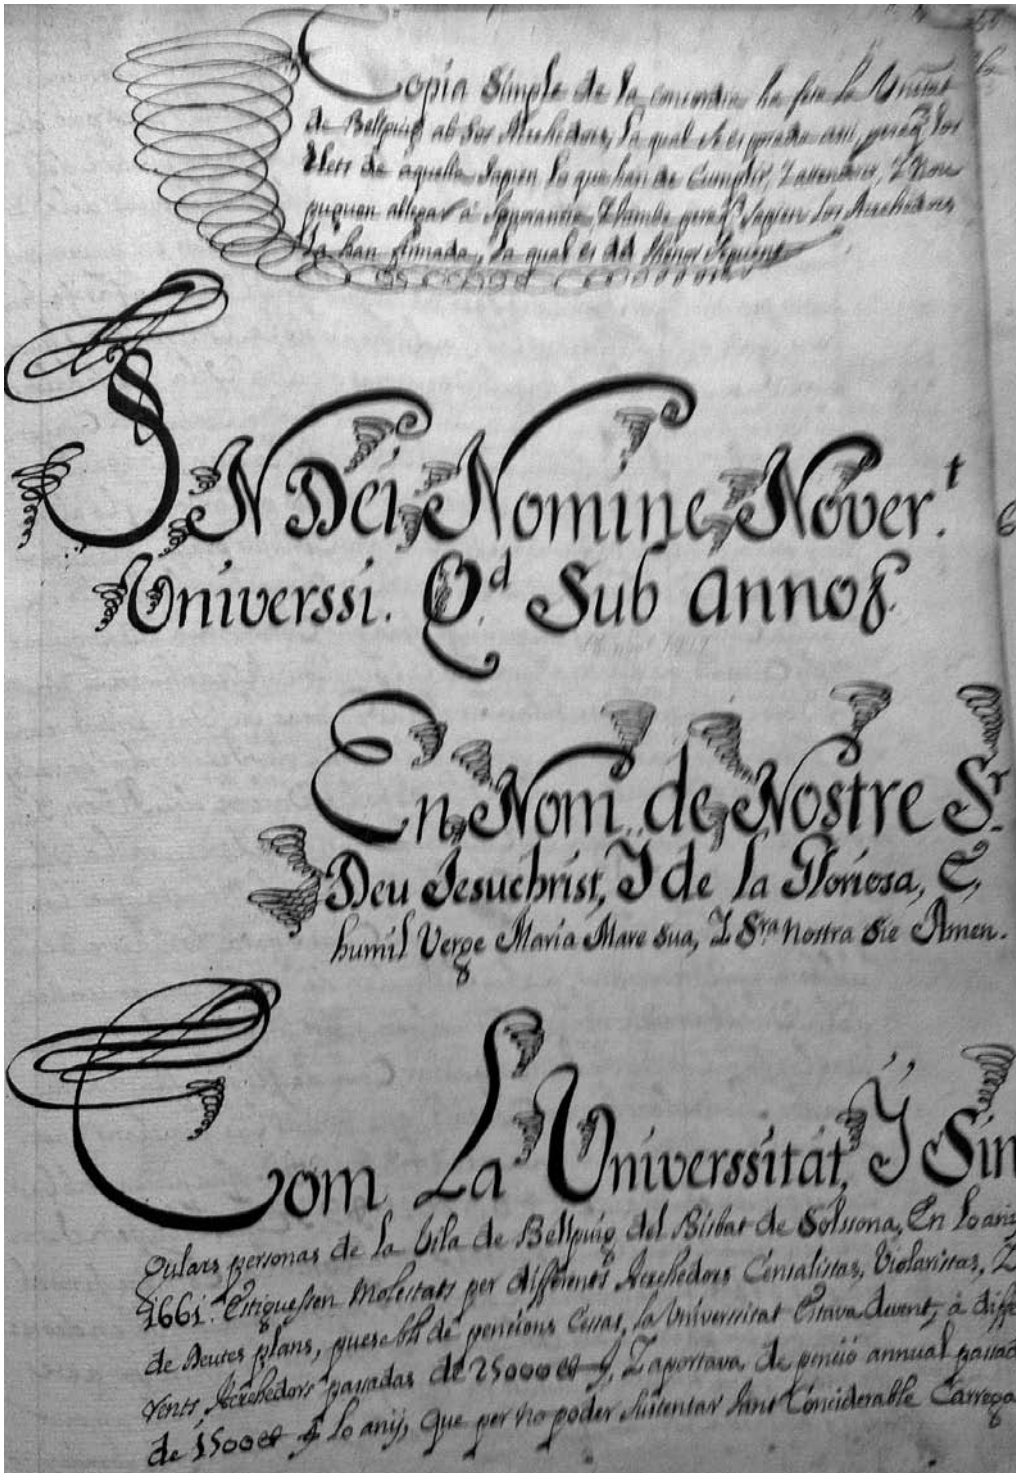 Copia Simple de la concordia ha feta la Uniuat
de Bellpuig ab sos Acrehedors, la qual se es posada assi, peraq̃ los
Elets de aquella sapien lo que han de Cumplir, Y attendrer, Y Nou
puguen allegar â Ignorancia, Y tambe peraq̃ sapien los Acrehedors
la han firmada, la qual es del thenor seguent
IN Dei Nomine Nover.t
Universsi. Q.d Sub annos.
En Nom de Nostre Sr.
Deu Jesuchrist, Y de la Gloriosa, E,
humil Verge Maria Mare sua, Y Sra Nostra sie Amen.
Com La Universsitát, Y Sin
gulars personas de la Vila de Bellpuig del Bisbat de Solsona, En lo any
1661. Estiguessen Molestats per differents Acrehedors Censalistas, Violaristas, Y
de Deutes plans, pues de pencions Cessas, la Universitat Estava devent, â diffe
rents Acrehedors passadas de 25000 Y aportava de penció annual passad
de 1500 lo any, que per no poder sustentar tant Conciderable Carrega